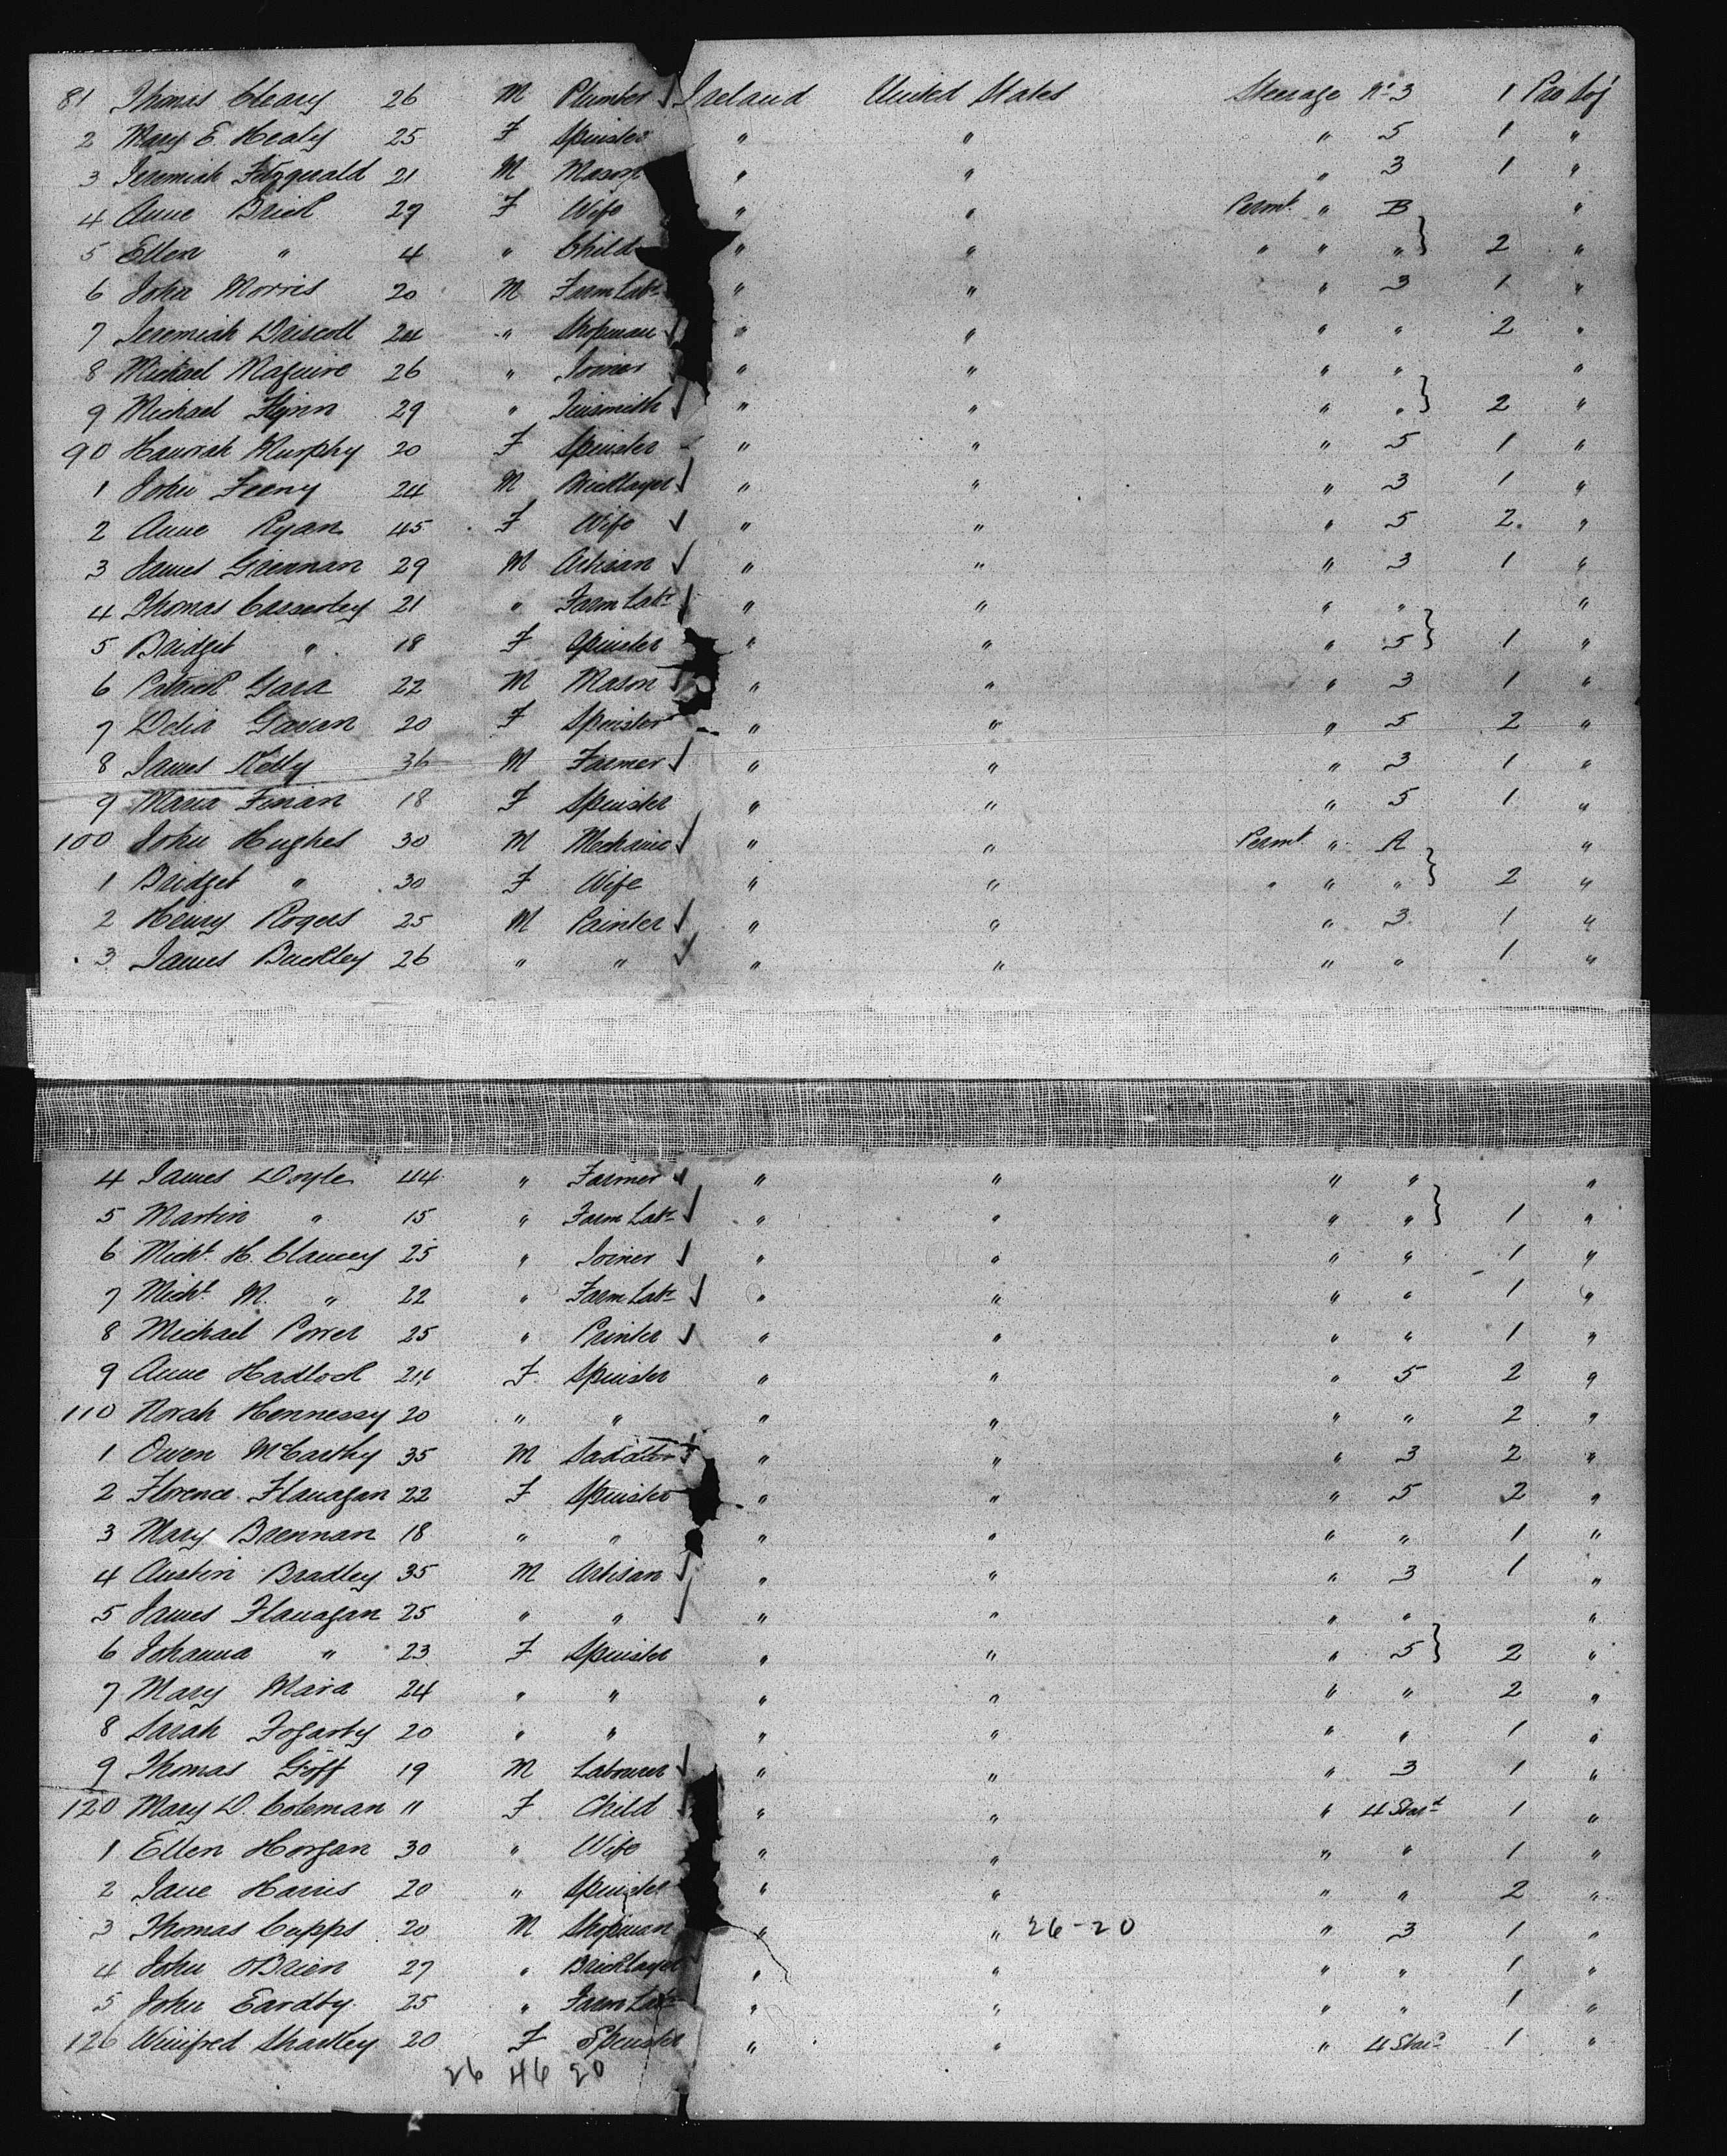 81 Thomas Cleary 26 M Plumber Ireland United States Steerage No 3 1 Pro Soj
2 Mary E. Healy 25 F Spinster " " " 5 1 "
3 Jeremiah Fitzgerald 21 M Mason " " " 3 1 "
4 Anne Brick 29 F Wife " " Permt. " B "
5 Ellen " 4 " Child " " " " " } 2 "
6 John Morris 20 M Farm Labr " " " 3 1 "
7 Jeremiah Driscoll 24 " Shopman " " " " 2 "
8 Michael Maguire 26 " Joiner " " " " "
9 Michael Flynn 29 " Tinsmith " " " " } 2 "
90 Hannah Murphy 20 F Spinster " " " 5 1 "
1 John Feeny 24 M Bricklayer " " " 3 1 "
2 Anne Ryan 45 F Wife " " " 5 2 "
3 James Grennan 29 M Artisan " " " 3 1 "
4 Thomas Casserley 21 " Farm Labr " " " " "
5 Bridget " 18 F Spinster " " " 5 } 1 "
6 Patrick Gara 22 M Mason " " " 3 1 "
7 Delia Gavan 20 F Spinster " " " 5 2 "
8 James Kelly 36 M Farmer " " " 3 1 "
9 Maria Finan 18 F Spinster " " " 5 1 "
100 John Hughes 30 M Mechanic " " Permt. " A "
1 Bridget " 30 F Wife " " " " " } 2 "
2 Henry Rogers 25 M Painter " " " 3 1 "
3 James Buckley 26 " " " " " " 1 "
4 James Doyle 44 " Farmer " " " " "
5 Martin " 15 " Farm Labr " " " " } 1 "
6 Michl. H. Clancey 25 " Joiner " " " " 1 "
7 Michl. M. " 22 " Farm Labr " " " " 1 "
8 Michael Power 25 " Printer " " " " 1 "
9 Anne Hadlock 24 F Spinster " " " 5 2 "
110 Norah Hennessy 20 " " " " " " 2 "
1 Owen McCarthy 35 M Saddler " " " 3 2 "
2 Florence Flanagan 22 F Spinster " " " 5 2 "
3 Mary Brennan 18 " " " " " " 1 "
4 Austin Bradley 35 M Artisan " " " 3 1 "
5 James Flanagan 25 " " " " " " "
6 Johanna " 23 F Spinster " " " 5 } 2 "
7 Mary Mara 24 " " " " " " 2 "
8 Sarah Fogarty 20 " " " " " " 1 "
9 Thomas Goff 19 M Labourer " " " 3 1 "
120 Mary D. Coleman 11 F Child " " " 4 Star'd 1 "
1 Ellen Horgan 30 " Wife " " " " 1 "
2 Jane Harris 20 " Spinster " " " " 2 "
3 Thomas Cupps 20 M Shopman " " 26-20 " 3 1 "
4 John O'Brien 27 " Bricklayer " " " " 1 "
5 John Eardly 25 " Farm Labr " " " " 1 "
126 Winifred Sharkey 20 F Spinster " " " 4 Star'd 1 "
26 46 20